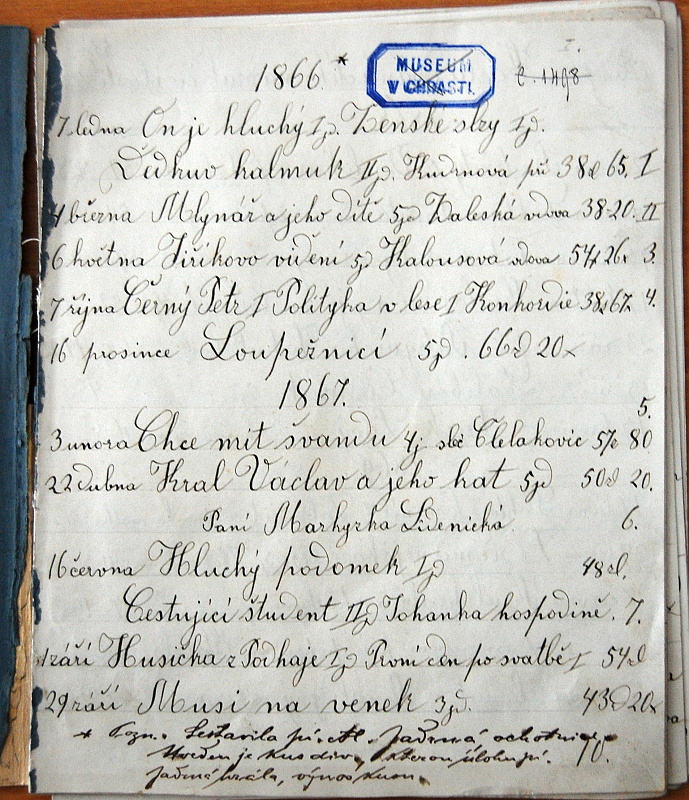 1866.*
MUSEUM
W CHRASTI.
I.
č. 1498
7. ledna On je hluchý I jd. Ženské slzy I jd.
Dědkuv kalmuk II jd. Kudrnová při 38 d 65. I
4 března Mlynář a jeho dítě 5 jd Zaleská vdova 38 20. II
6 května Jiříkovo vidění 5 jd Kalousová vdova 54 26 x 3.
7 října Černý Petr I Polityka v lese I Konkordie 38 67 x 4.
16 prosince Loupežnící 5 jd. 66 d 20 x
1867.
5.
3 unora Chce mit švandu 4 j slč Clelakovic 57 80
22 dubna Kral Václav a jeho kat 5 jd 50 d 20.
Paní Markyrka Lidenická 6.
16 června Hluchý podomek I jd 48 d.
Cestující student II jd Johanka hospodině. 7.
1 září Husička z Podhaje I jd První den po svatbě I 54 d
29 září Musi na venek 3 jd. 43 d 20 x
* Pozn. Sestavila pí.
Uveden je kus div., kterou úlohu pí.
hrála, výnos kusu. 70.